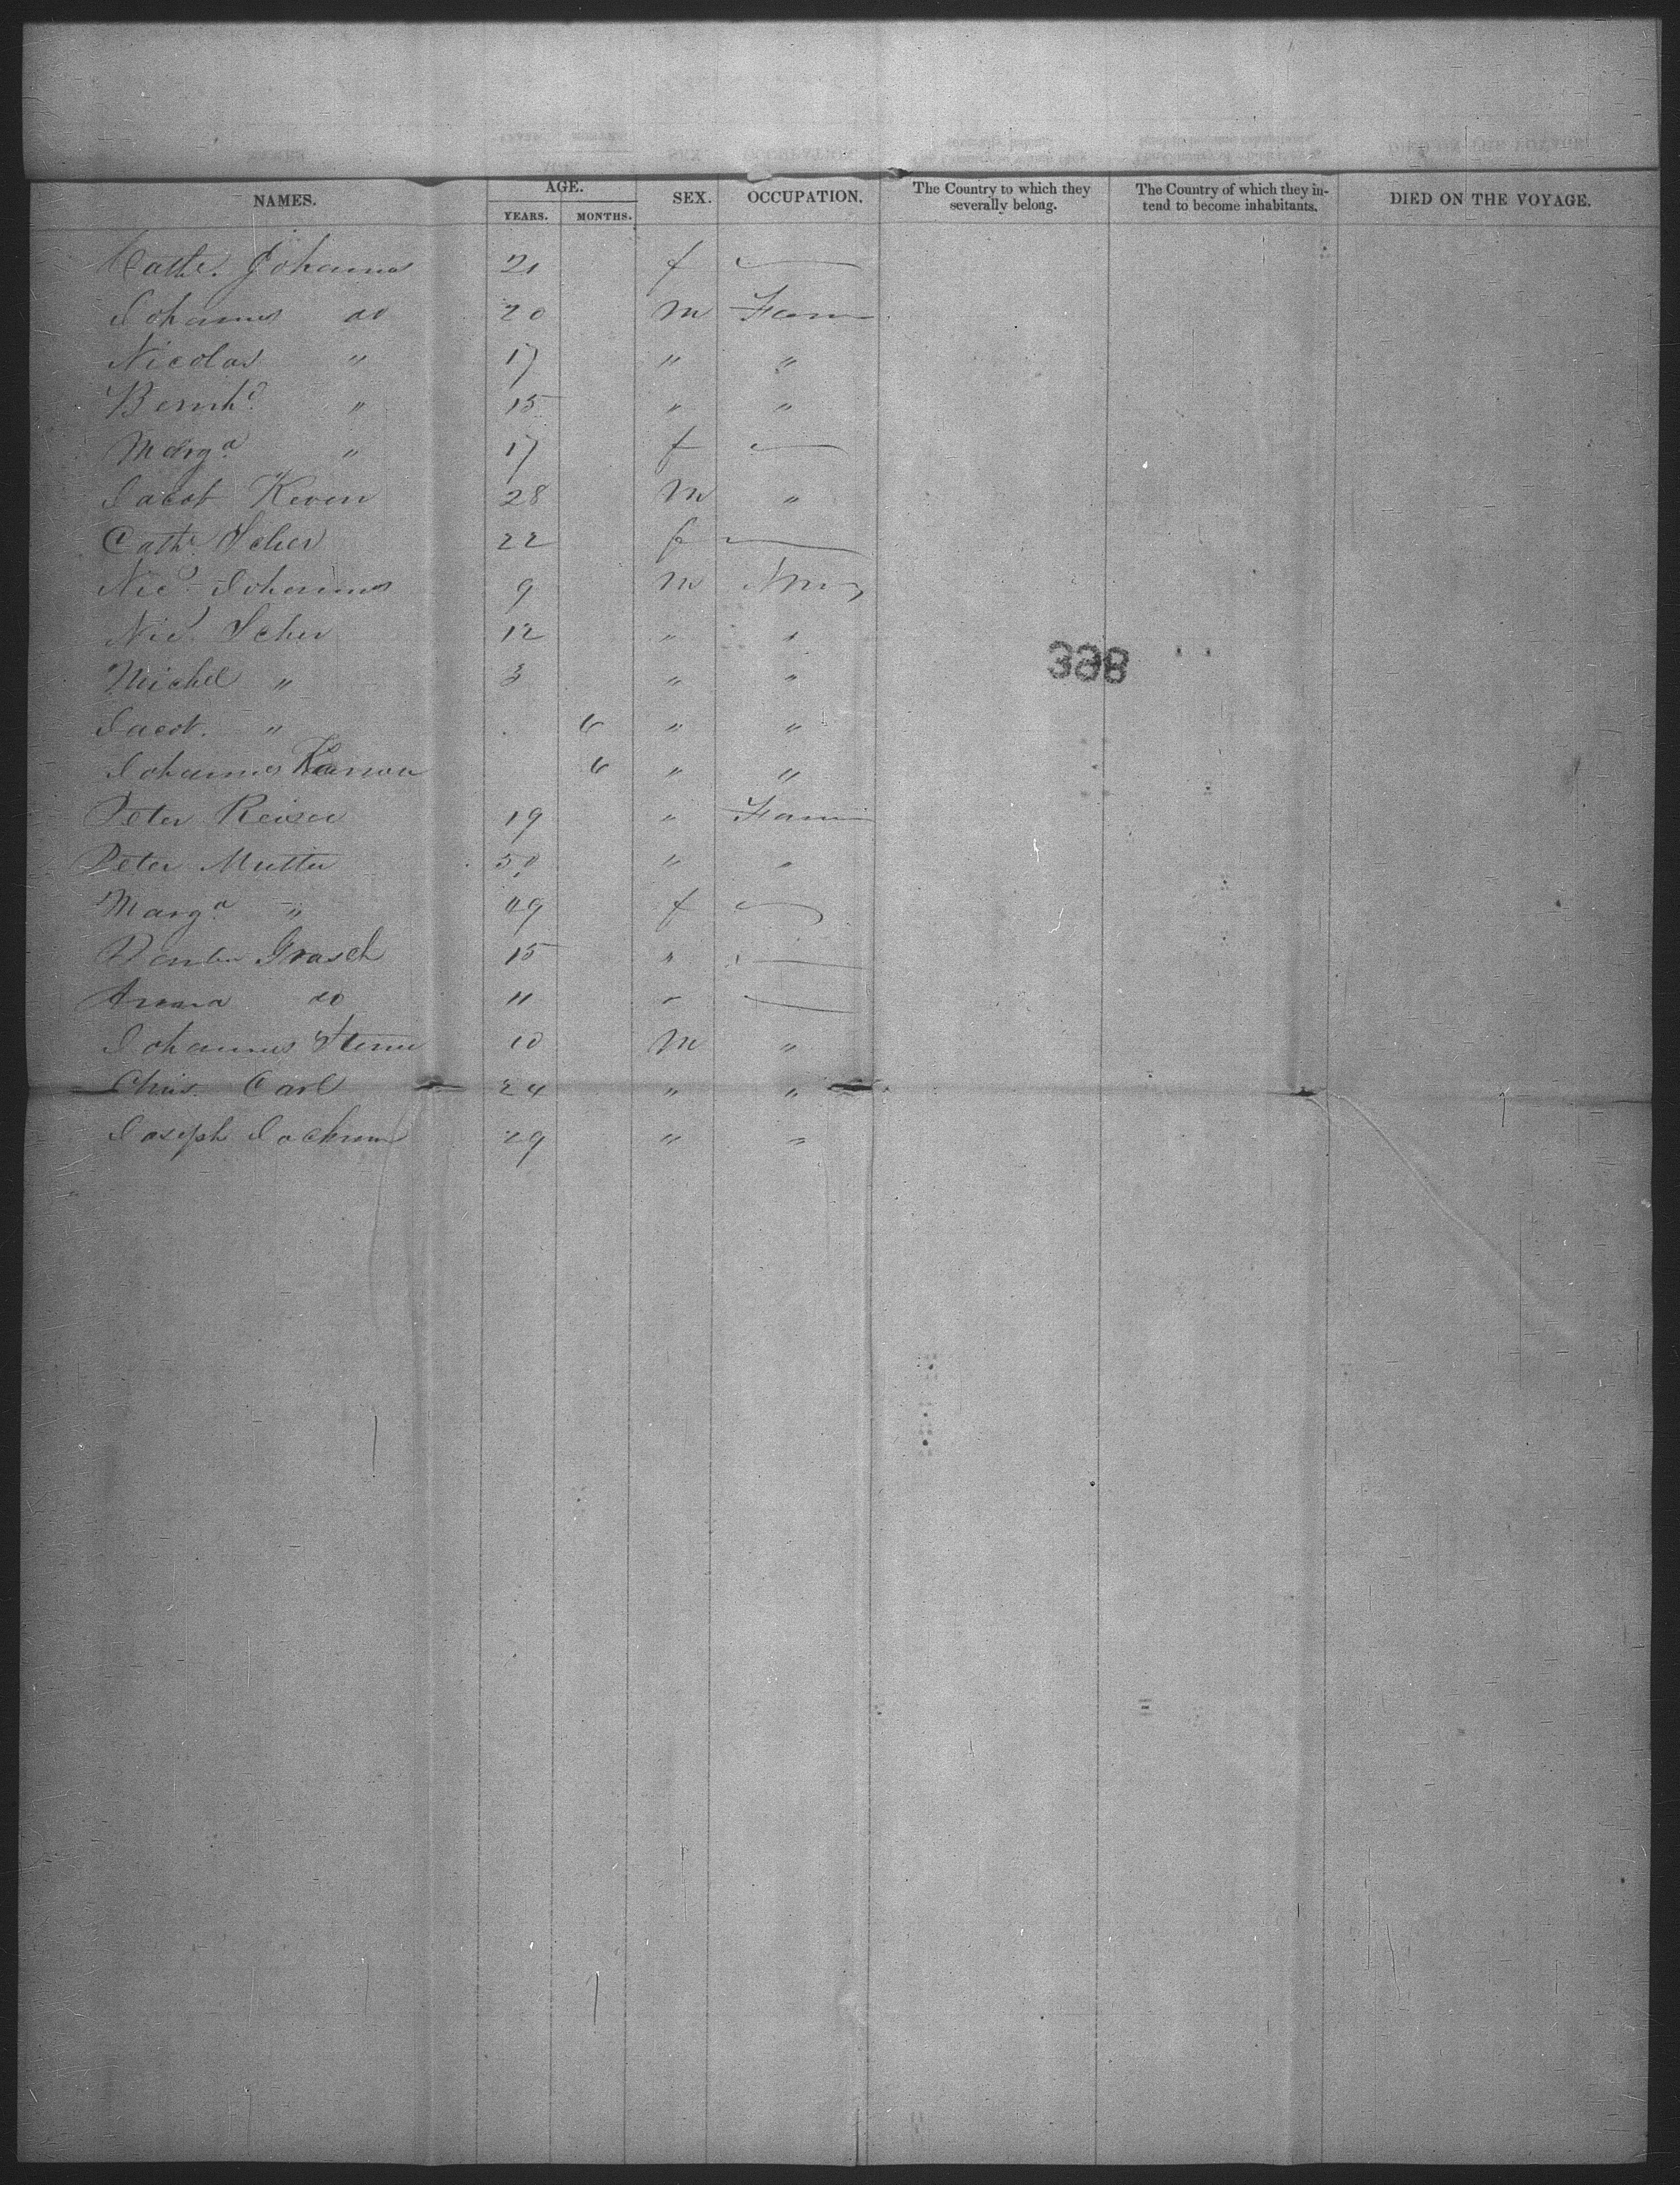 NAMES. AGE. YEARS. MONTHS. SEX. OCCUPATION. The Country to which they severally belong. The Country of which they intend to become inhabitants. DIED ON THE VOYAGE.
Cathe. Johannes 21 f
Johannes do 20 M Farm
Nicolas " 17 " "
Bernhd. " 15 " "
Marga. " 17 f
Jacob Keven 28 M "
Cathe. Scher 22 f
Nics. Johannes 9 M
Nics. Scher 12 " "
Michel " 3 " "
Jacob. " 6 " "
Johannes 6 " "
Peter Reiser 19 " Farm
Peter Mutter 50 " "
Marga. " 49 f
Grasch 15 "
Anna do 11 "
Johannes 10 M "
Chris. Carl 24 " "
Joseph 29 " "
338